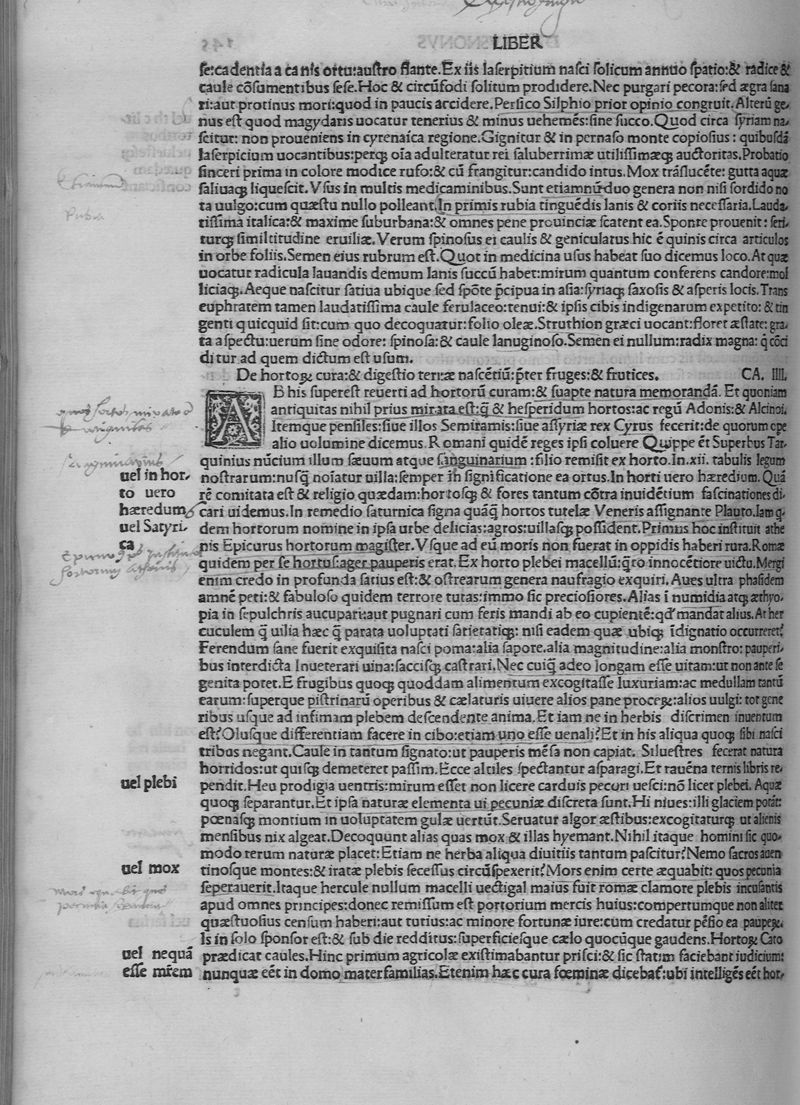 LIBER
se:cadentia a canis ortu:austro flante. Ex iis laserpitium nasci solicum annuo spatio:& radice &
caule cōsumentibus sese. Hoc & circūfodi solitum prodidere. Nec purgari pecora:sed ægra sana
ri:aut protinus mori:quod in paucis accidere. Persico Silphio prior opinio congruit. Alterū ge-
nus est quod magydaris uocatur tenerius & minus uehemēs:sine succo. Quod circa syriam na-
scitur: non proueniens in cyrenaica regione. Gignitur & in pernaso monte copiosius: quibusdā
laserpicium uocantibus:perqȝ oīa adulteratur rei saluberrimæ utilissimæqȝ auctoritas. Probatio
sinceri prima in colore modice rufo:& cū frangitur:candido intus. Mox trāslucēte: gutta aquæ
saliuaqȝ liquescit. Vsus in multis medicaminibus. Sunt etiamnū duo genera non nisi sordido no
ta uulgo:cum quæstu nullo polleant. In primis rubia tinguēdis lanis & coriis necessaria. Lauda-
tissima italica:& maxime suburbana:& omnes pene prouinciæ scatent ea. Sponte prouenit: seri-
turqȝ similitudine eruiliæ. Verum spinosus ei caulis & geniculatus hic ē quinis circa articulos
in orbe foliis. Semen eius rubrum est. Quot in medicina usus habeat suo dicemus loco. At quæ
uocatur radicula lauandis demum lanis succū habet:mirum quantum conferens candore:mol
liciaqȝ. Aeque nascitur satiua ubique sed spōte p̄cipua in asia:syriaqȝ saxosis & asperis locis. Trans
euphratem tamen laudatissima caule ferulaceo:tenui:& ipsis cibis indigenarum expetito: & tin
genti quicquid sit:cum quo decoquatur:folio oleæ. Struthion græci uocant:floret æstate: gra-
ta aspectu:uerum sine odore: spinosa:& caule lanuginoso. Semen ei nullum:radix magna: q̄ cōci
ditur ad quem dictum est usum.
De hortoꝝ cura:& digestio terræ nascētiū:p̄ter fruges:& frutices. CA. IIII.
AB his superest reuerti ad hortorū curam:& suapte natura memorandā. Et quoniam
antiquitas nihil prius mirata est:q̄ & hesperidum hortos:ac regū Adonis:& Alcinoi.
Itemque pensiles:siue illos Semiramis:siue assyriæ rex Cyrus fecerit:de quorum ope
alio uolumine dicemus. Romani quidē reges ipsi coluere Quippe ēt Superbus Tar-
quinius nūcium illum sæuum atque sanguinarium :filio remisit ex horto. In .xii. tabulis legum
uel in hor_ nostrarum:nusq̄ noīatur uilla:semper īh significatione ea ortus. In horti uero hæredium. Quā
to uero rē comitata est & religio quædam:hortosqȝ & fores tantum cōtra inuidētium fascinationes di-
hæredum cari uidemus. In remedio saturnica signa quāq̄ hortos tutelæ Veneris assignante Plauto. Iam q-
uel Satyri- dem hortorum nomine in ipsa urbe delicias:agros:uillasqȝ possident. Primus hoc instituit athe
ca nis Epicurus hortorum magister. Vsque ad eū moris non fuerat in oppidis haberi rura. Romæ
quidem per se hortus:ager pauperis erat. Ex horto plebei macellū:q̄ro innocētiore uictu. Mergi
enim credo in profunda satius est:& ostrearum genera naufragio exquiri. Aues ultra phasidem
amnē peti:& fabuloso quidem terrore tutas:immo sic preciosiores. Alias ī numidia atqȝ æthyo-
pia in sepulchris aucupari:aut pugnari cum feris mandi ab eo cupientē:qđ mandat alius. At her
cuculem q̄ uilia hæc q̄ parata uoluptati satietatiqȝ: nisi eadem quæ ubiqȝ īdignatio occurreret?
Ferendum sane fuerit exquisita nasci poma:alia sapore.alia magnitudine:alia monstro: pauperi-
bus interdicta Inueterari uina:saccisqȝ castrari. Nec cuiq̄ adeo longam esse uitam:ut non ante se
genita potet. E frugibus quoqȝ quoddam alimentum excogitasse luxuriam:ac medullam tantū
earum:superque pistrinarū operibus & cælaturis uiuere alios pane proceꝝ:alios uulgi: tot gene
ribus usque ad infimam plebem descendente annona. Et iam ne in herbis discrimen inuentum
est? Olusque differentiam facere in cibo:etiam uno esse uenali? Et in his aliqua quoqȝ sibi nasci
tribus negant. Caule in tantum signato:ut pauperis mēsa non capiat. Siluestres fecerat natura
horridos:ut quisqȝ demeteret passim. Ecce altiles spectantur asparagi. Et rauēna ternis libris re,
uel plebi pendit. Heu prodigia uentris:mirum esset non licere carduis pecori uesci:nō licet plebei. Aquæ
quoqȝ separantur. Et ipsa naturæ elementa ui pecuniæ discreta sunt. Hi niues:illi glaciem potāt:
pœnasqȝ montium in uoluptatem gulæ uertūt. Seruatur algor æstibus:excogitaturqȝ ut alienis
mensibus nix algeat. Decoquunt alias quas mox & illas hyemant. Nihil itaque homini sic quo-
modo rerum naturæ placet:Etiam ne herba aliqua diuitiis tantum pascitur? Nemo sacros auen
uel mox tinosque montes:& iratæ plebis secessus circūspexerit? Mors enim certe æquabit: quos pecunia
seperauerit. Itaque hercule nullum macelli uectigal maius fuit romæ clamore plebis incusantis
apud omnes principes:donec remissum est portorium mercis huius:compertumque non aliter
quæstuosius censum haberi:aut tutius:ac minore fortunæ iure:cum credatur pēsio ea paupeꝝ.
Is in solo sponsor est:& sub die redditus:superficiesque cælo quocūque gaudens. Hortoꝝ Cato
uel nequā prædicat caules. Hinc primum agricolæ existimabantur prisci:& sic statim faciebant iudicium:
esse mr̄em nunquæ eēt in domo materfamilias. Etenim hæc cura fœminæ dicebat̄:ubi intelligēs eēt hor-